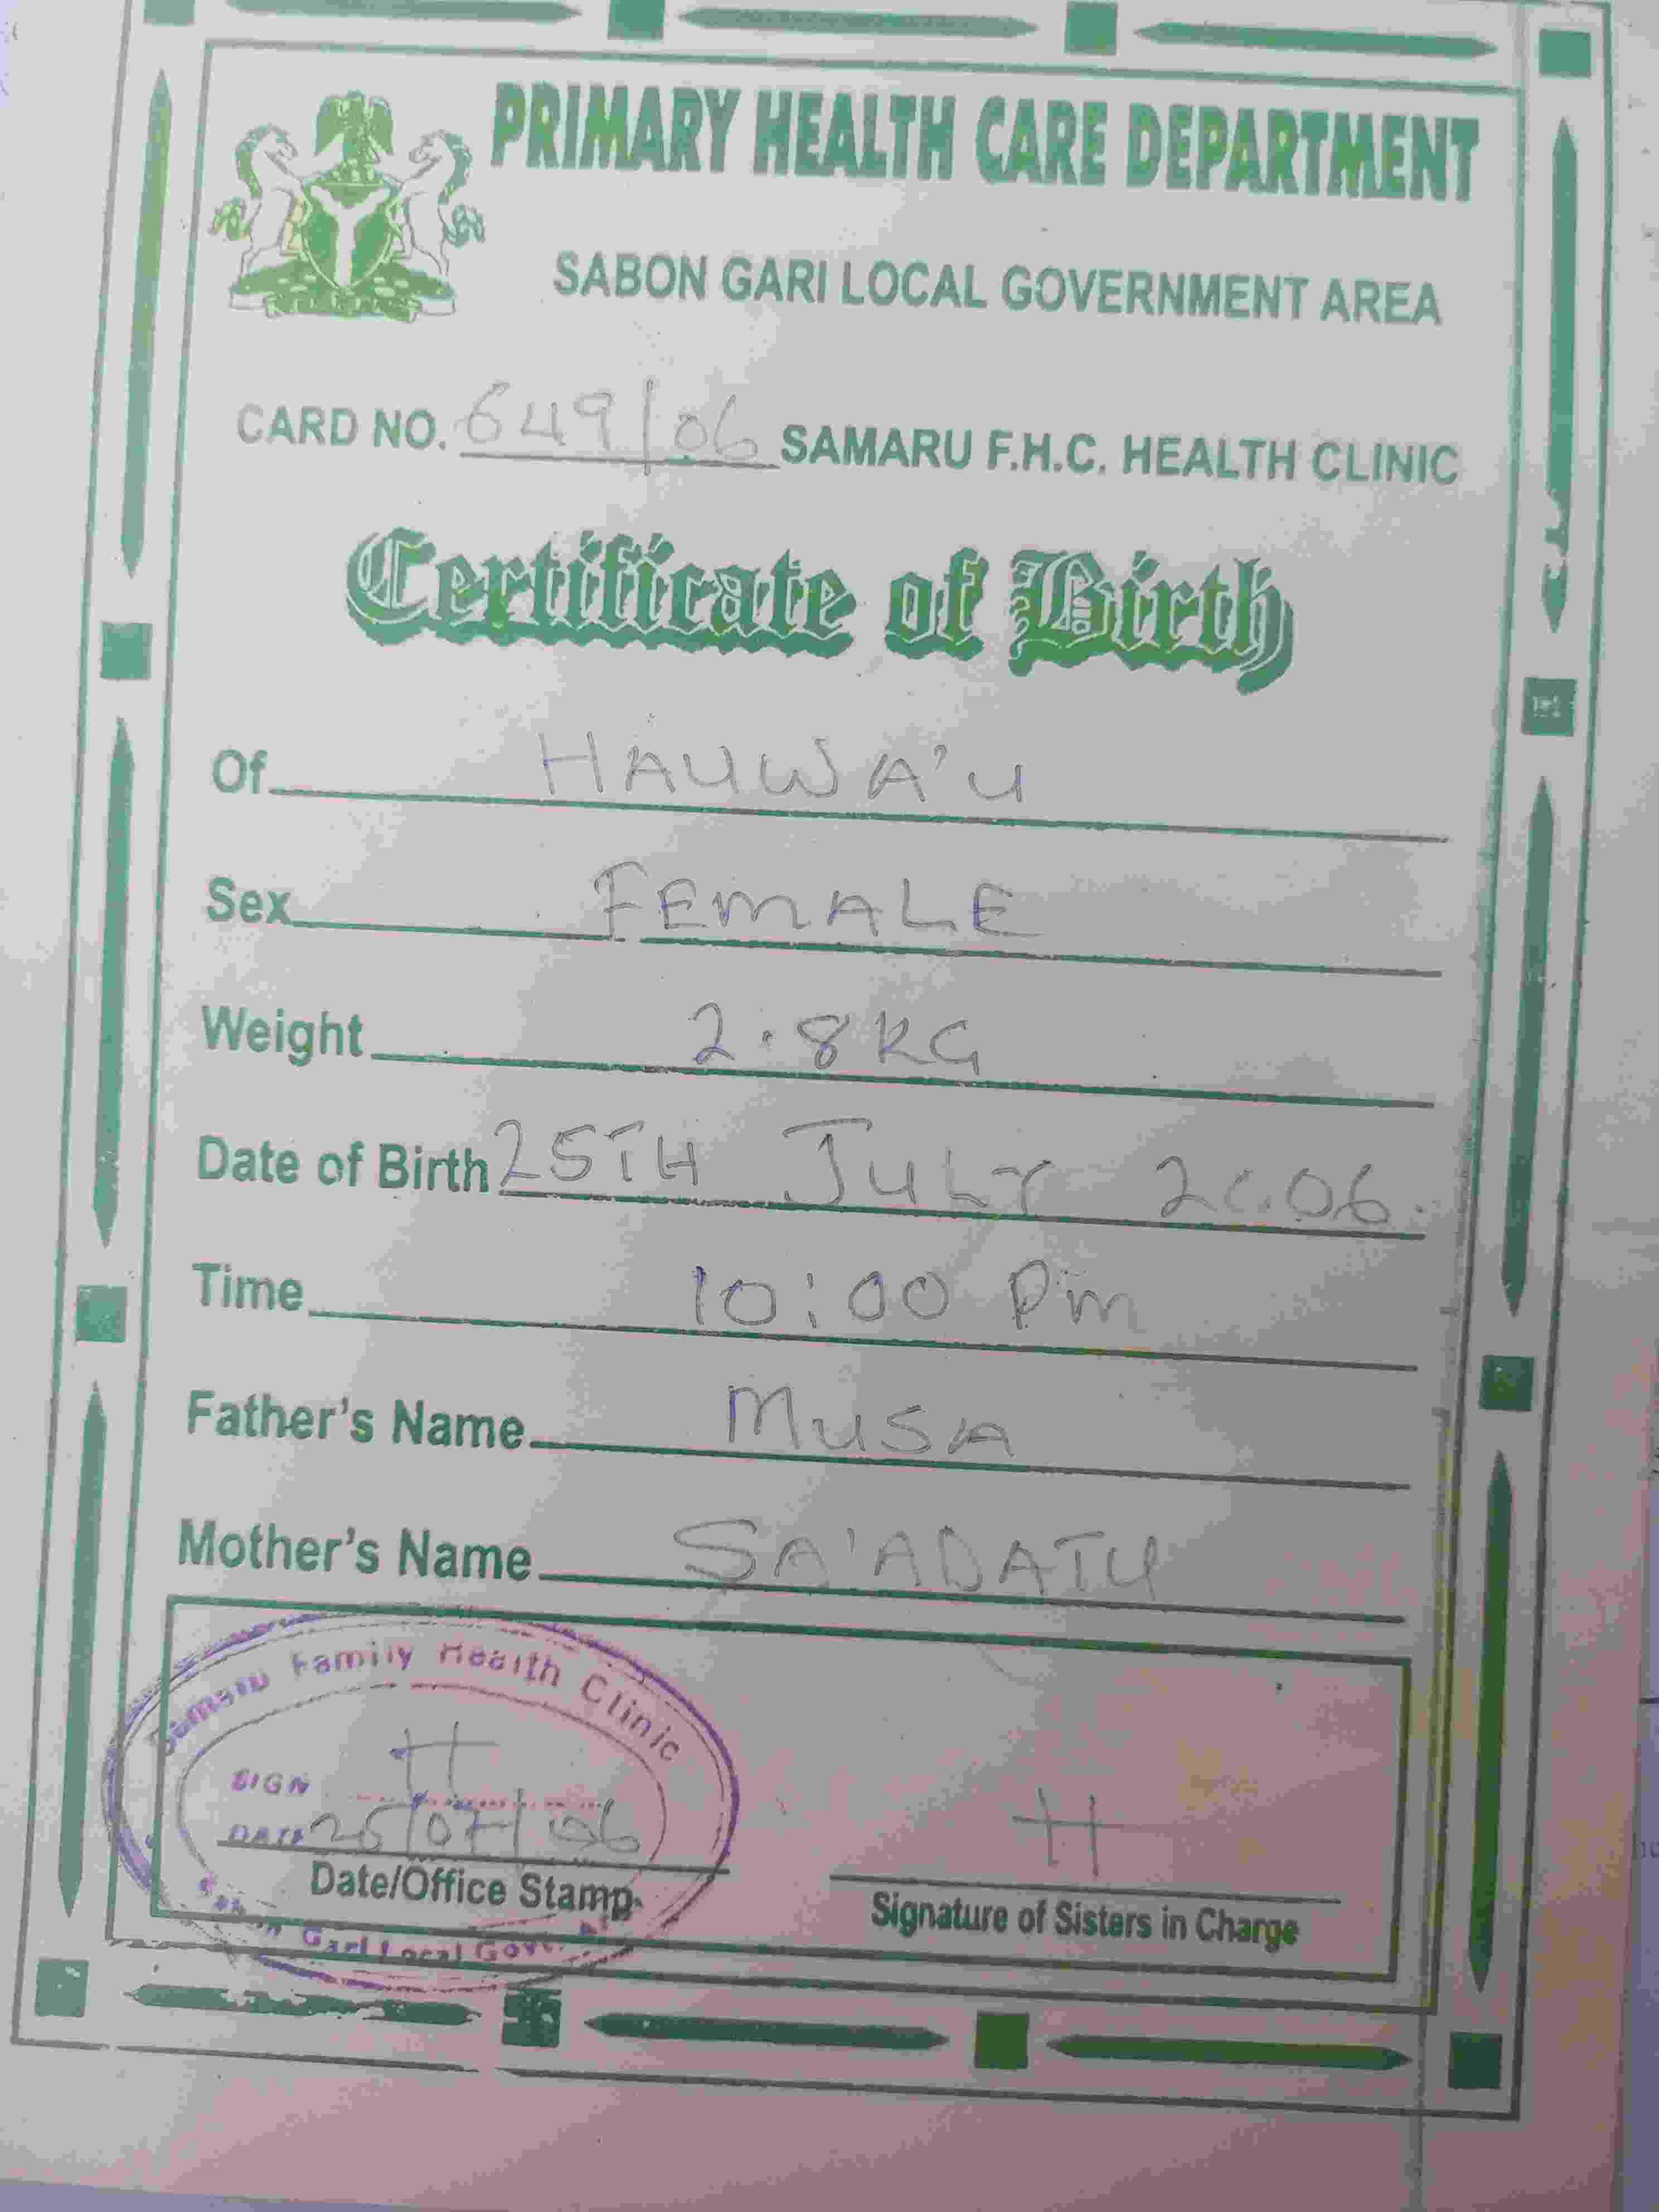 PRIMARY HEALTH CARE DEPARTMENT
SABON GARI LOCAL GOVERNMENT AREA
CARD NO. 649/06 SAMARU F.H.C. HEALTH CLINIC
Certificate of Birth
Of HAUWA'U
Sex FEMALE
Weight 2.8KG
Date of Birth 25TH JULY 2006.
Time 10:00 Pm
Father's Name MUSA
Mother's Name SA'ADATU
Samaru Family Health Clinic
SIGN H
DATE 25/07/06
Date/Office Stamp
Sabon Gari Local Govt.
H
Signature of Sisters in Charge